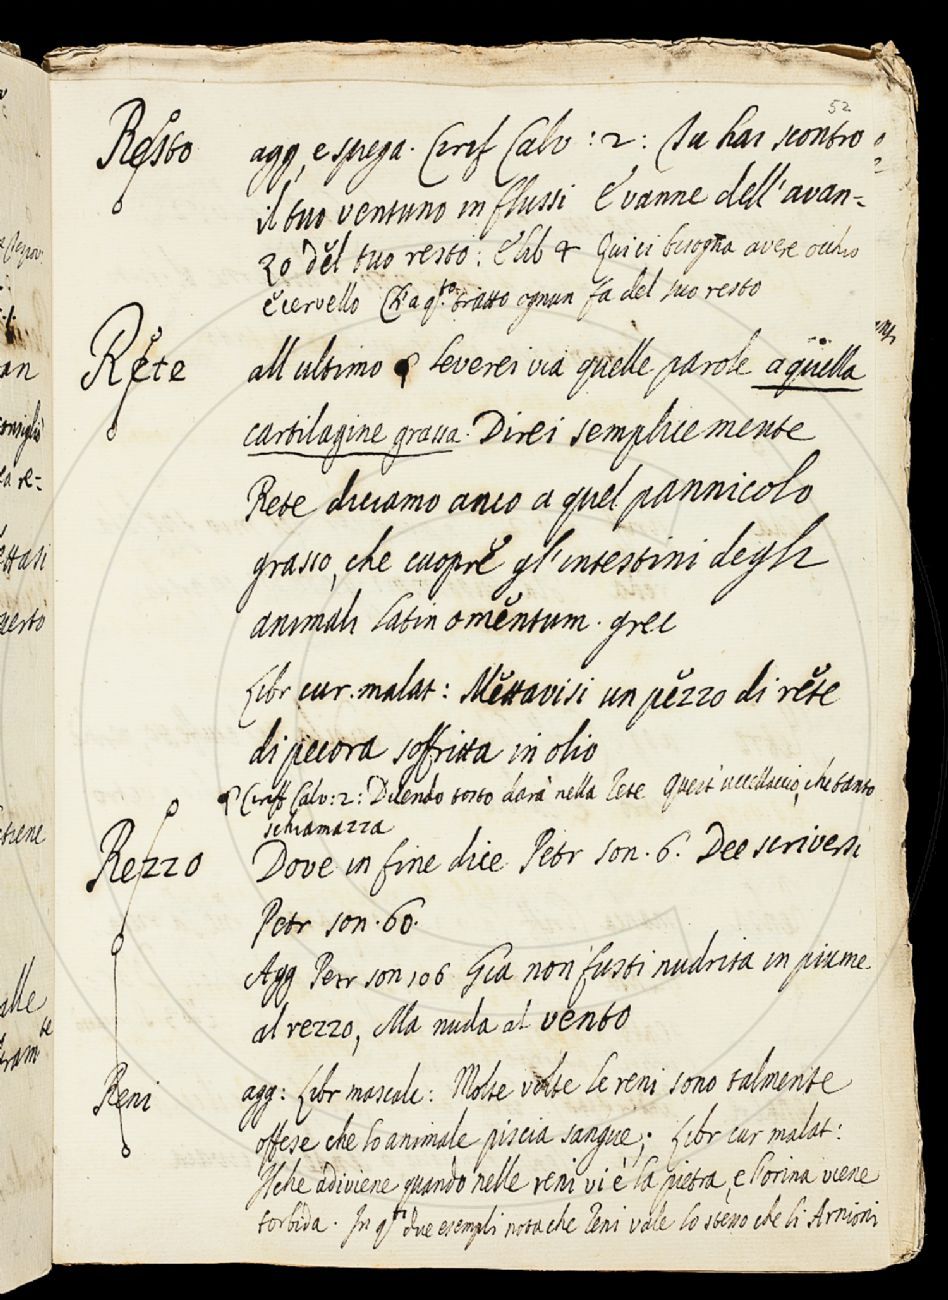 52
Resto agg, e spega. Ciriff Calv: 2: Tu hai scontro
il tuo ventuno in flussi E vanne dell' avan-
zo del tuo resto: E lib 4 Qui ci bisogna avere occhio
e cervello Ch'a q.to tratto ognun fa del suo resto
Rete all ultimo leverei via quelle parole a quella
cartilagine grassa. Direi semplicemente
Rete diciamo anco a quel pannicolo
grasso, che cuopre gl'intestini degli
animali latin omentum. grec
Libr cur. malat: Mettavisi un pezzo di rete
di pecora soffritta in olio
Ciriff Calv: 2: Dicendo tosto darà nella Rete Quest' uccellaccio, che tanto
schiamazza
Rezzo Dove in fine dice Petr son. 6. Dee scriversi
Petr son. 60.
Agg Petr son 106 Già non fusti nudrita in piume
al rezzo, Ma nuda al vento
Reni agg: Libr mascalc: Molte volte le reni sono talmente
offese che lo animale piscia sangue; Libr cur malat:
Il che adiviene quando nelle reni vi è la pietra, e l'orina viene
torbida. In q.ti due esempli nota che Reni vale lo stesso che li Arnioni